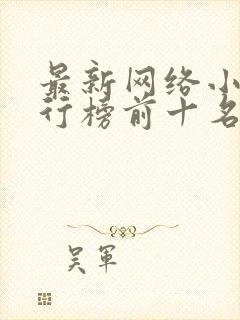 最新网络小
行榜前十名
吴军